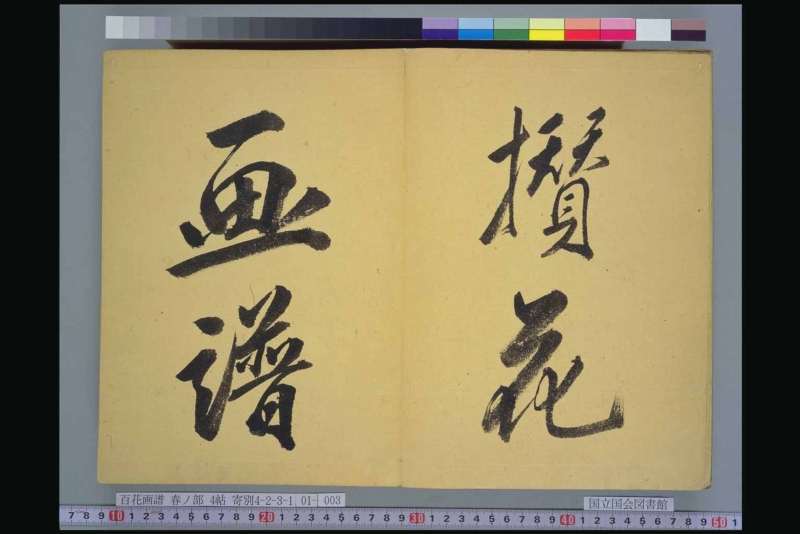 攅花
画譜
百花画譜 春ノ部 4帖 寄別4-2-3-1 01- 003
国立国会図書館
7 8 9 10 1 2 3 4 5 6 7 8 9 20 1 2 3 4 5 6 7 8 9 30 1 2 3 4 5 6 7 8 9 40 1 2 3 4 5 6 7 8 9 50 1